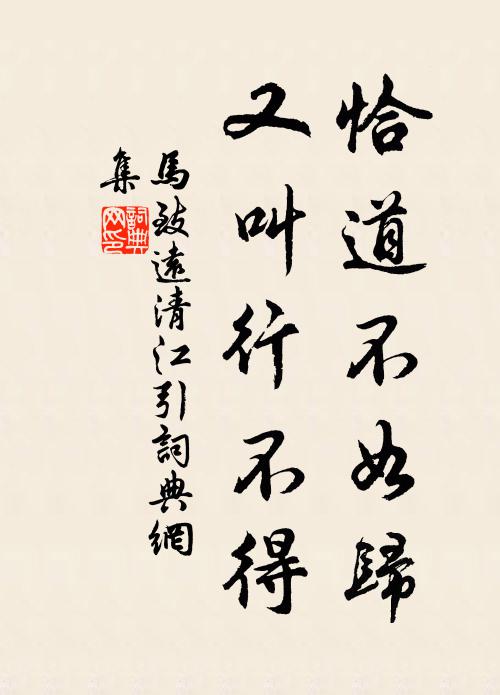 恰道不如歸
又叫行不得
馬致遠清江引詞典網
集
詞典
网印